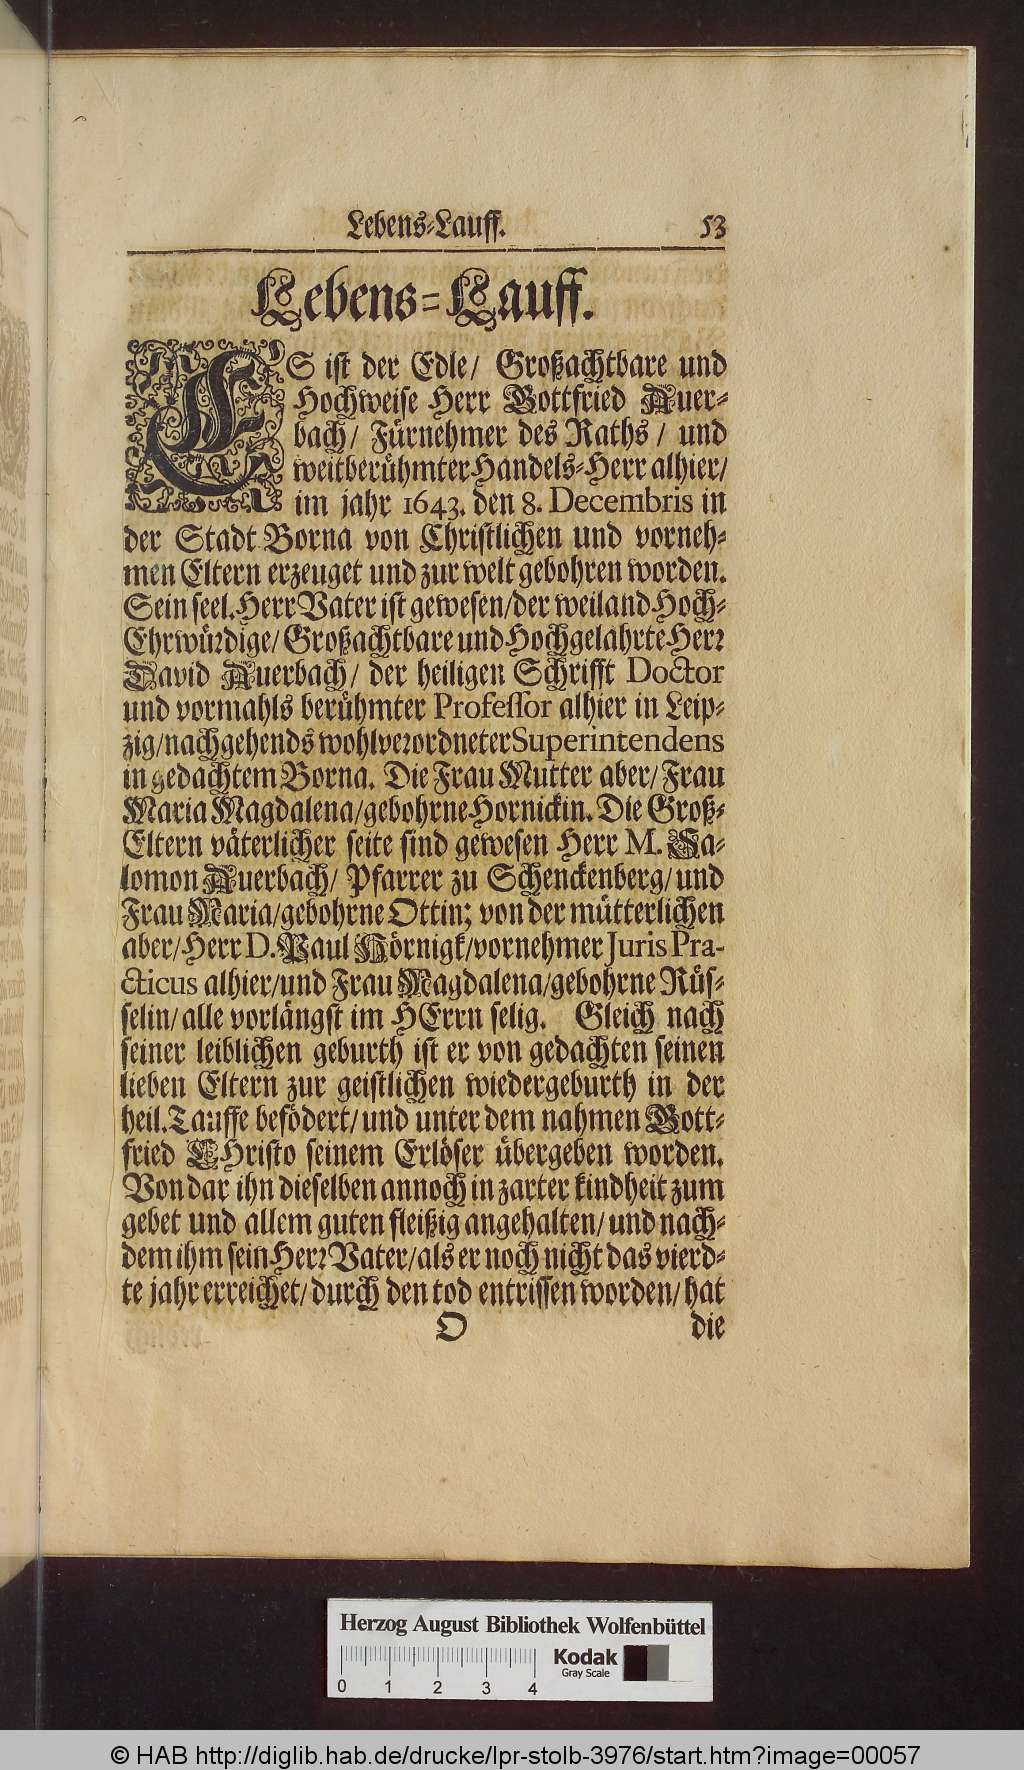 Lebens-Lauff. 53
Lebens-Lauff.
ES ist der Edle/ Großachtbare und
Hochweise Herr Gottfried Auer-
bach/ Fürnehmer des Raths/ und
weitberühmter Handels-Herr alhier/
im jahr 1643. den 8. Decembris in
der Stadt Borna von Christlichen und vorneh-
men Eltern erzeuget und zur welt gebohren worden.
Sein seel. Herr Vater ist gewesen/ der weiland Hoch-
Ehrwürdige/ Großachtbare und Hochgelahrte Herr
David Auerbach/ der heiligen Schrifft Doctor
und vormahls berühmter Professor alhier in Leip-
zig/ nachgehends wohlverordneter Superintendens
in gedachtem Borna. Die Frau Mutter aber/ Frau
Maria Magdalena/ gebohrne Hornickin. Die Groß-
Eltern väterlicher seite sind gewesen Herr M. Sa-
lomon Auerbach/ Pfarrer zu Schenckenberg/ und
Frau Maria/ gebohrne Ottin; von der mütterlichen
aber/ Herr D. Paul Hörnigk/ vornehmer Juris Pra-
cticus alhier/ und Frau Magdalena/ gebohrne Rüs-
selin/ alle vorlängst im HErrn selig. Gleich nach
seiner leiblichen geburth ist er von gedachten seinen
lieben Eltern zur geistlichen wiedergeburth in der
heil. Tauffe befödert/ und unter dem nahmen Gott-
fried CHristo seinem Erlöser übergeben worden.
Von dar ihn dieselben annoch in zarter kindheit zum
gebet und allem guten fleißig angehalten/ und nach-
dem ihm sein Herr Vater/ als er noch nicht das vierd-
te jahr erreichet/ durch den tod entrissen worden/ hat
O die
Herzog August Bibliothek Wolfenbüttel
Kodak
Gray Scale
0 1 2 3 4
© HAB http://diglib.hab.de/drucke/lpr-stolb-3976/start.htm?image=00057